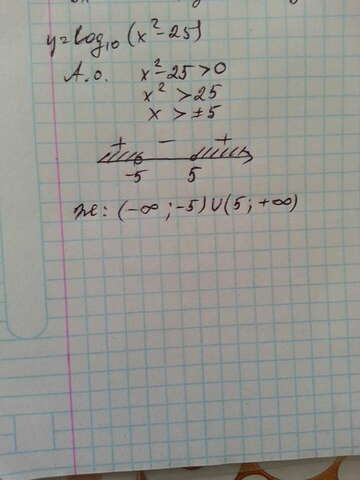 y=log₁₀(x²-25)
А.о. x²-25>0
x²>25
x>±5
+ - +
-5 5
же: (-∞;-5)∪(5;+∞)